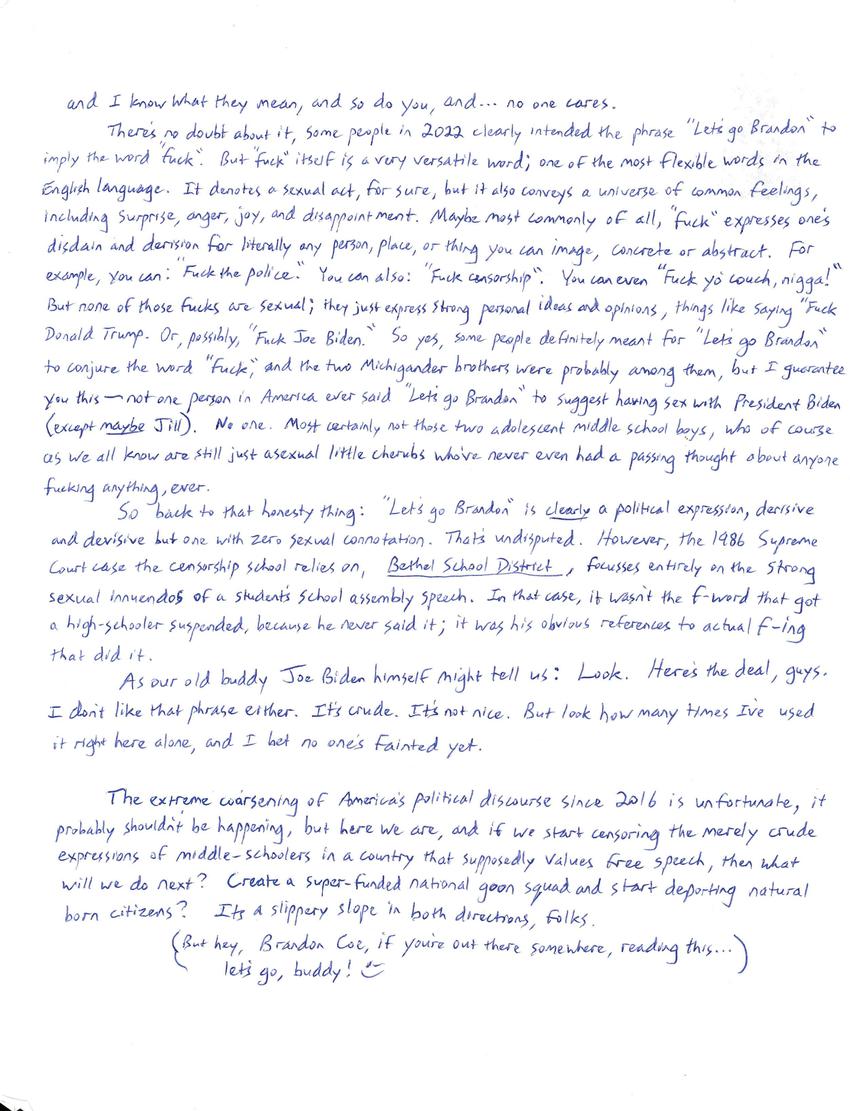 and I know what they mean, and so do you, and... no one cares.
There's no doubt about it, some people in 2022 clearly intended the phrase "Let's go Brandon" to
imply the word "fuck". But "fuck" itself is a very versatile word; one of the most flexible words in the
English language. It denotes a sexual act, for sure, but it also conveys a universe of common feelings,
including surprise, anger, joy, and disappointment. Maybe most commonly of all, "fuck" expresses one's
disdain and derision for literally any person, place, or thing you can image, concrete or abstract. For
example, you can: "Fuck the police." You can also: "Fuck censorship". You can even "Fuck yo' couch, nigga!"
But none of those fucks are sexual; they just express strong personal ideas and opinions, things like saying "Fuck
Donald Trump. Or, possibly, "Fuck Joe Biden." So yes, some people definitely meant for "Let's go Brandon"
to conjure the word "Fuck," and the two Michigander brothers were probably among them, but I guarantee
you this — not one person in America ever said "Let's go Brandon" to suggest having sex with President Biden
(except maybe Jill). No one. Most certainly not those two adolescent middle school boys, who of course
as we all know are still just asexual little cherubs who've never even had a passing thought about anyone
fucking anything, ever.
So back to that honesty thing: "Let's go Brandon" is clearly a political expression, derisive
and devisive but one with zero sexual connotation. That's undisputed. However, the 1986 Supreme
Court case the censorship school relies on, Bethel School District, focusses entirely on the strong
sexual innuendos of a student's school assembly speech. In that case, it wasn't the f-word that got
a high-schooler suspended, because he never said it; it was his obvious references to actual f-ing
that did it.
As our old buddy Joe Biden himself might tell us: Look. Here's the deal, guys.
I don't like that phrase either. It's crude. It's not nice. But look how many times I've used
it right here alone, and I bet no one's fainted yet.
The extreme coarsening of America's political discourse since 2016 is unfortunate, it
probably shouldn't be happening, but here we are, and if we start censoring the merely crude
expressions of middle-schoolers in a country that supposedly values free speech, then what
will we do next? Create a super-funded national goon squad and start deporting natural
born citizens? It's a slippery slope in both directions, folks.
(But hey, Brandon Coe, if you're out there somewhere, reading this...
let's go, buddy! 🙂)